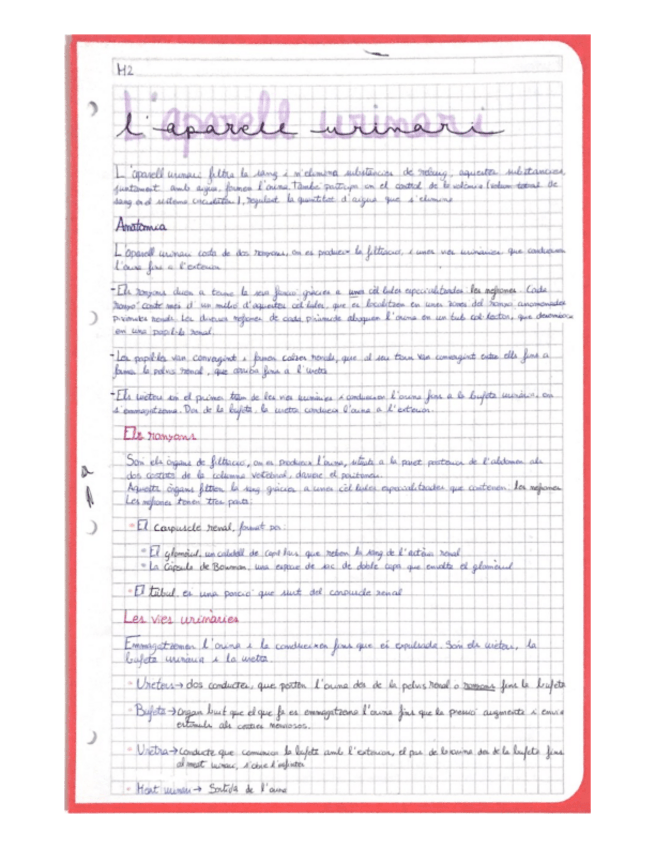 M2
L'aparell urinari
L'aparell urinari filtra la sang i n'elimina substàncies de rebuig, aquestes substàncies,
juntament amb aigua, formen l'orina. També participa en el control de la volèmia (volum total de
sang en el sistema circulatori), regulant la quantitat d'aigua que s'elimina
Anatomia
L'aparell urinari costa de dos ronyons, on es produeix la filtració, i unes vies urinàries que condueixen
l'orina fins a l'exterior
- Els ronyons duen a terme la seva funció gràcies a unes cèl·lules especialitzades: les nefrones. Cada
ronyó conté més d'un milió d'aquestes cèl·lules, que es localitzen en unes zones del ronyó anomenades
piràmides renals. Les diverses nefrones de cada piràmide aboquen l'orina en un tub col·lector, que desemboca
en una papil·la renal.
- Les papil·les van convergint i formen calzes renals, que al seu torn van convergint entre ells fins a
formar la pelvis renal, que dóna fins a l'urèter
- Els urèters són el primer tram de les vies urinàries i condueixen l'orina fins a la bufeta urinària, on
s'emmagatzema. Des de la bufeta, la uretra condueix l'orina a l'exterior.
Els ronyons
Són els òrgans de filtració, on es produeix l'orina, situats a la paret posterior de l'abdomen als
dos costats de la columna vertebral, darrere el peritoneu.
Aquests òrgans filtren la sang gràcies a unes cèl·lules especialitzades que contenen: les nefrones
Les nefrones tenen tres parts:
• El corpuscle renal, format per:
• El glomèrul, un cabdell de capil·lars que reben la sang de l'artèria renal
• La càpsula de Bowman, una espècie de sac de doble capa que envolta el glomèrul
• El túbul, és una porció que surt del corpuscle renal
Les vies urinàries
Emmagatzemen l'orina i la condueixen fins que és expulsada. Són els urèters, la
bufeta urinària i la uretra.
• Urèters → dos conductes, que porten l'orina des de la pelvis renal o ronyons fins la bufeta
• Bufeta → Òrgan buit que el que fa és emmagatzema l'orina fins que la pressió augmenta i envia
estímuls als centres nerviosos.
• Uretra → Conducte que comunica la bufeta amb l'exterior, el pas de la orina des de la bufeta fins
al meat urinari, s'obre l'esfínter
• Meat urinari → Sortida de l'orina